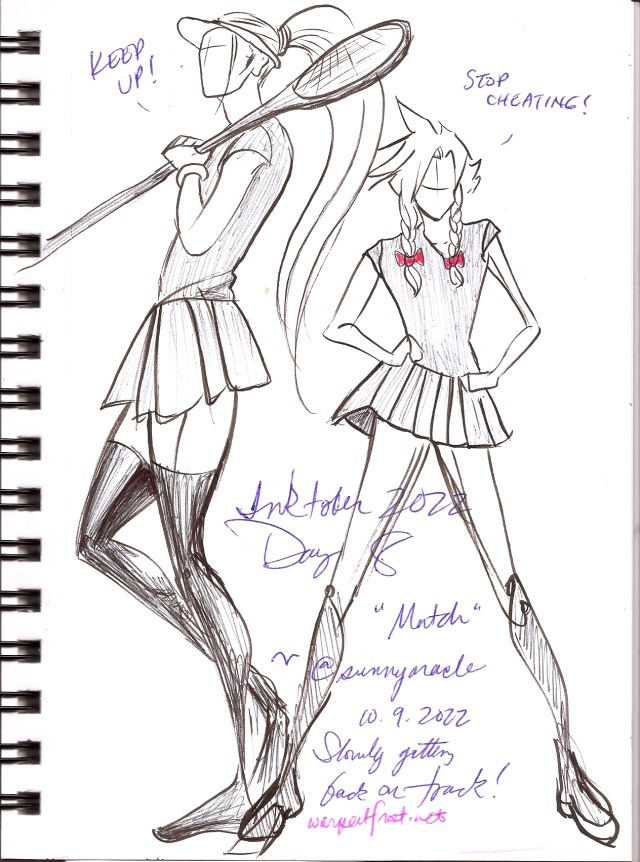 KEEP
UP!
STOP
CHEATING!
Inktober 2022
Day 8
"Match"
~ @sunnyoracle
10.9.2022
Slowly getting
back on track!